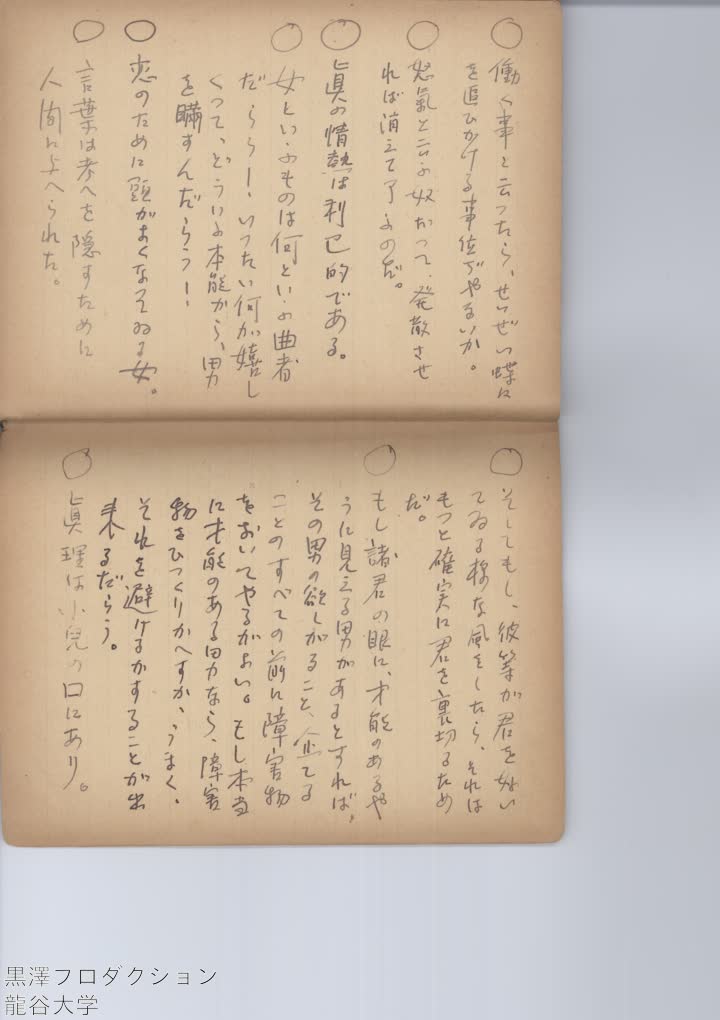 ○ 働く事と云つたら、せいぜい蝶に
を追ひかける事位ぢやないか。
○ 怒氣と云ふ奴だつて、発散させ
れば消えて了ふのだ。
○ 眞の情熱は利己的である。
○ 女といふものは何といふ曲者
だらう！いつたい何が嬉し
くつて、どういふ本能から、男
を瞞すんだらう！
○ 恋のために頭がよくなつてゐる女。
○ 言葉は考へを隠すために
人間に与へられた。
○ そしてもし、彼等が君を好い
てゐる様な風をしたら、それは
もつと確実に君を裏切るため
だ。
○ もし諸君の眼に、才能のあるや
うに見える男があるとすれば、
その男の欲しがること、企てる
ことのすべての前に障害物
をおいてやるがよい。もし本当
に才能のある男なら、障害
物をひつくりかへすか、うまく、
それを避けるかすることが出
来るだらう。
○ 眞理は小児の口にあり。
黒澤プロダクション
龍谷大学